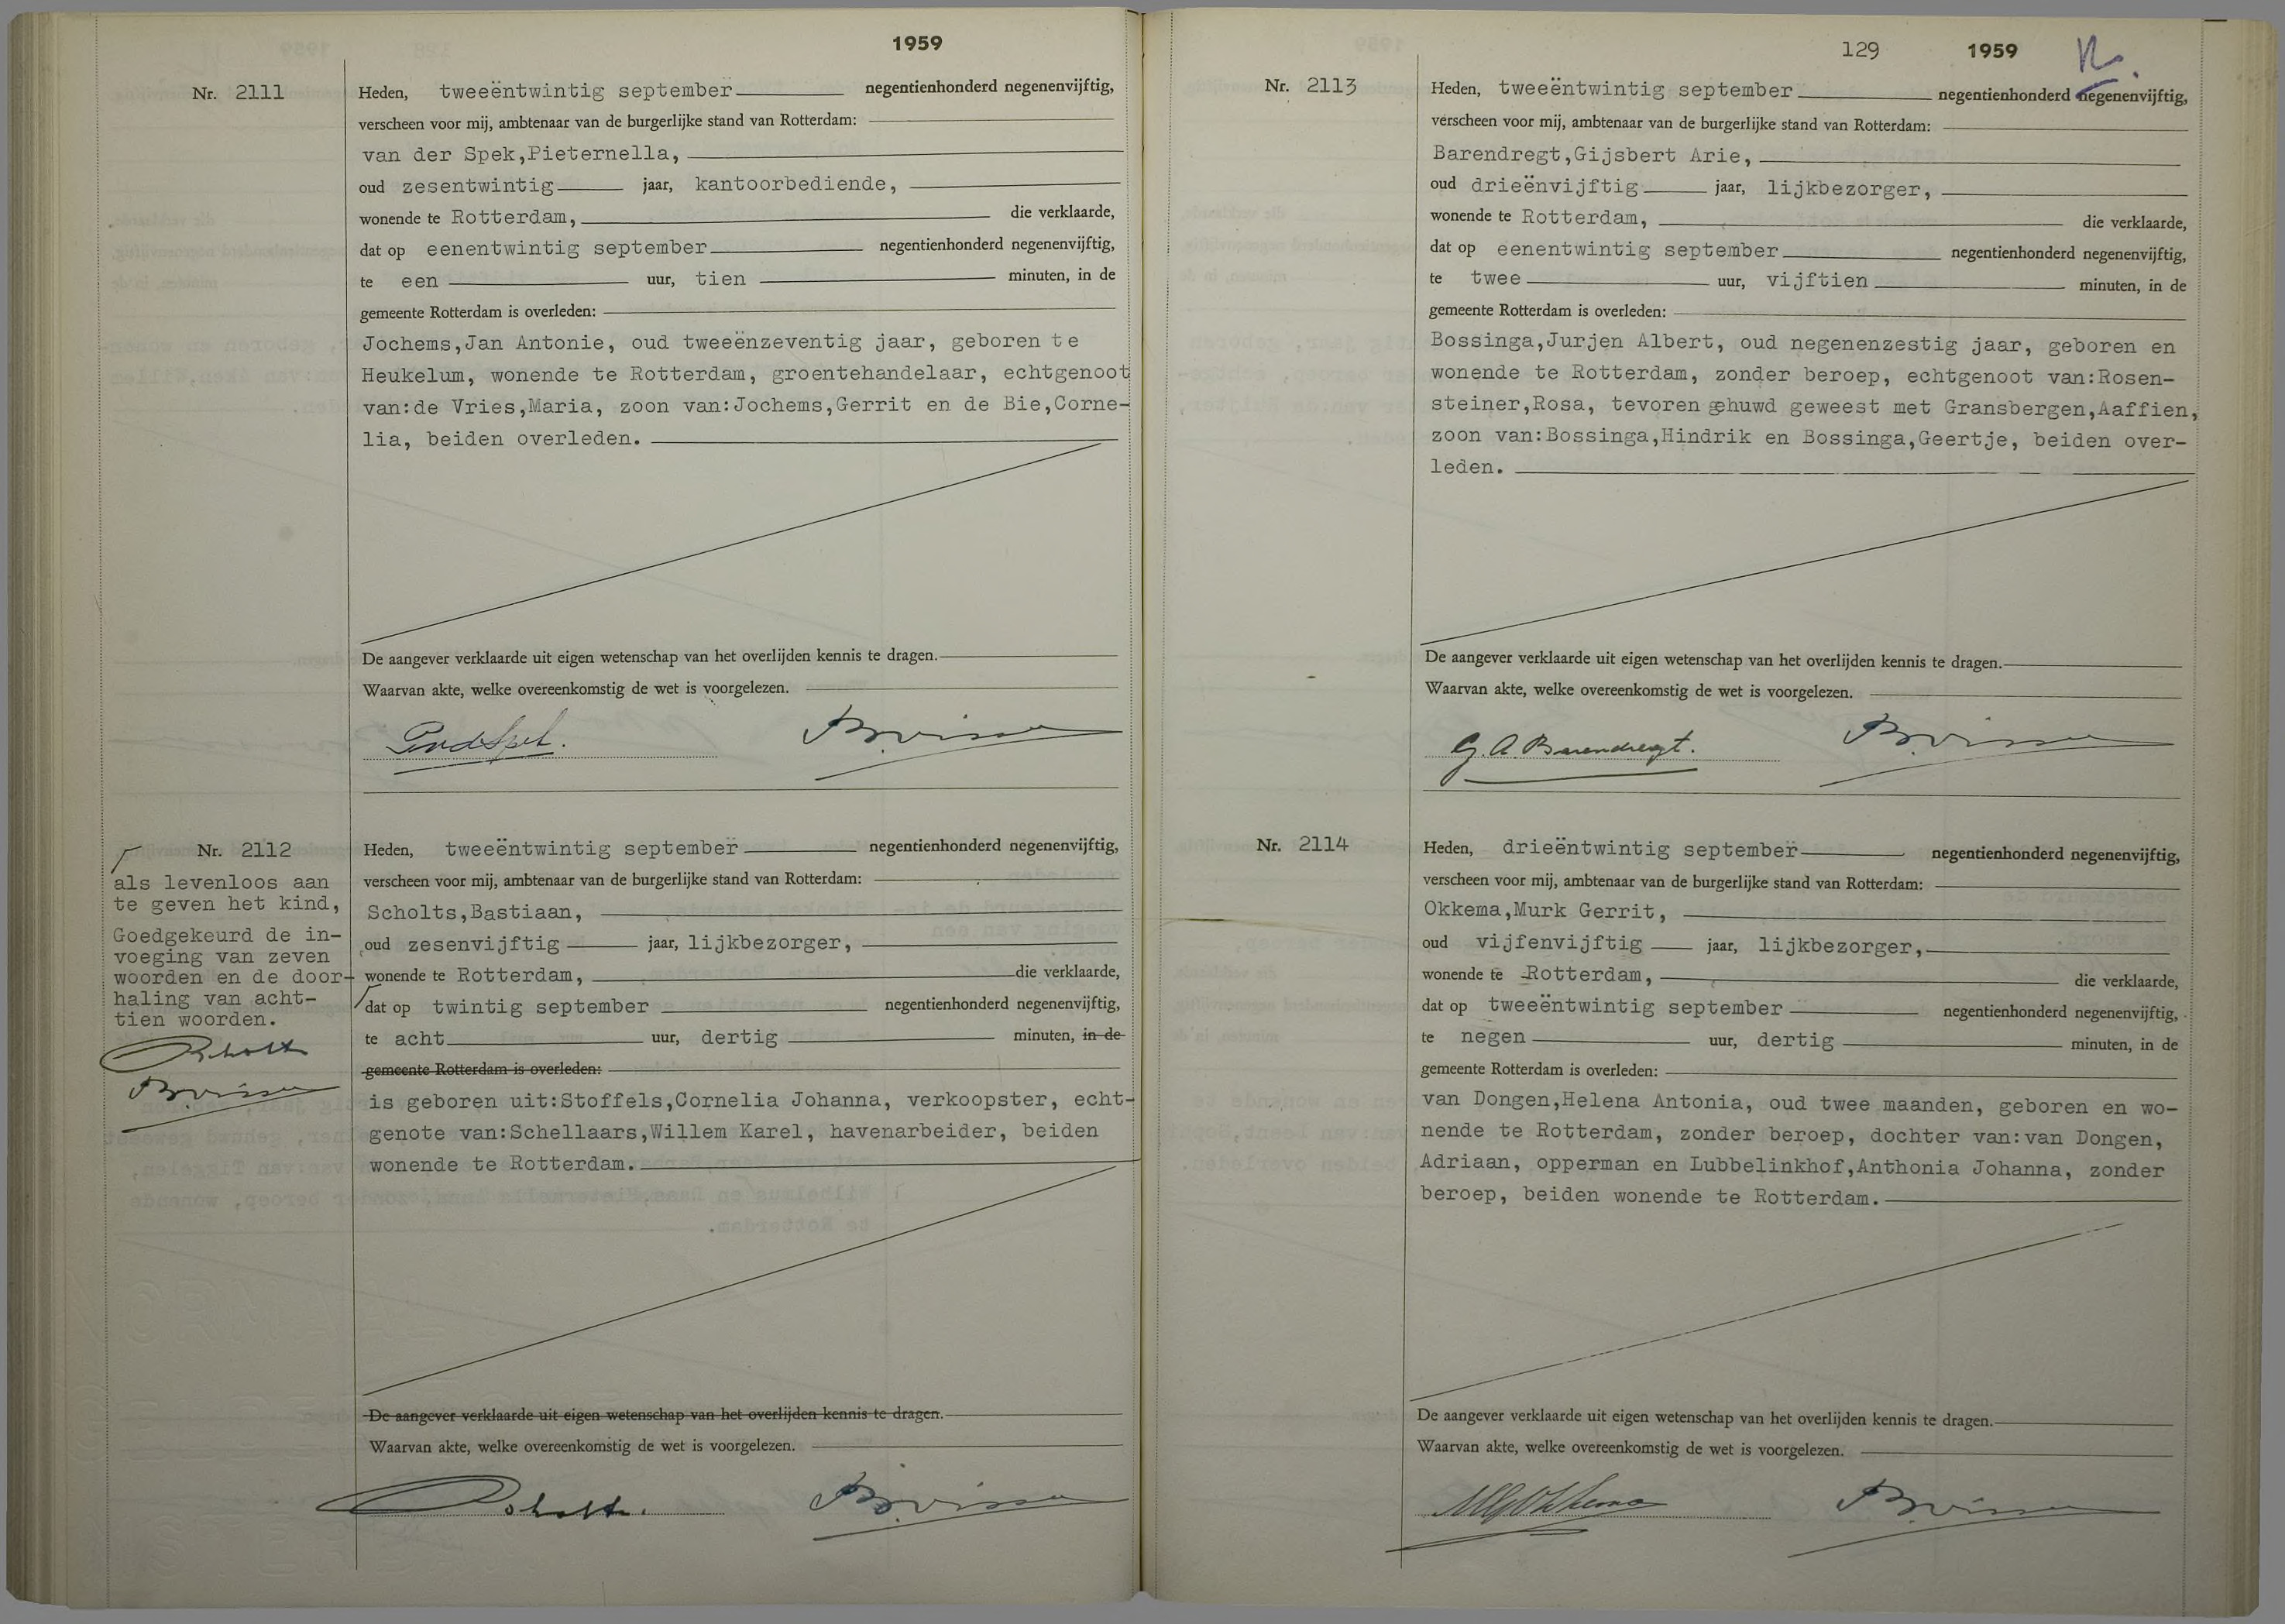 1959
Nr. 2111
Heden, tweeëntwintig september negentienhonderd negenenvijftig,
verscheen voor mij, ambtenaar van de burgerlijke stand van Rotterdam:
van der Spek,Pieternella,
oud zesentwintig jaar, kantoorbediende,
wonende te Rotterdam, die verklaarde,
dat op eenentwintig september negentienhonderd negenenvijftig,
te een uur, tien minuten, in de
gemeente Rotterdam is overleden:
Jochems,Jan Antonie, oud tweeënzeventig jaar, geboren te
Heukelum, wonende te Rotterdam, groentehandelaar, echtgenoot
van:de Vries,Maria, zoon van:Jochems,Gerrit en de Bie,Corne-
lia, beiden overleden.
De aangever verklaarde uit eigen wetenschap van het overlijden kennis te dragen.
Waarvan akte, welke overeenkomstig de wet is voorgelezen.
PvdSpek.
Nr. 2112
als levenloos aan
te geven het kind,
Goedgekeurd de in-
voeging van zeven
woorden en de door-
haling van acht-
tien woorden.
Heden, tweeëntwintig september negentienhonderd negenenvijftig,
verscheen voor mij, ambtenaar van de burgerlijke stand van Rotterdam:
Scholts,Bastiaan,
oud zesenvijftig jaar, lijkbezorger,
wonende te Rotterdam, die verklaarde,
dat op twintig september negentienhonderd negenenvijftig,
te acht uur, dertig minuten, in de
gemeente Rotterdam is overleden:
is geboren uit:Stoffels,Cornelia Johanna, verkoopster, echt-
genote van:Schellaars,Willem Karel, havenarbeider, beiden
wonende te Rotterdam.
De aangever verklaarde uit eigen wetenschap van het overlijden kennis te dragen.
Waarvan akte, welke overeenkomstig de wet is voorgelezen.
129 1959
Nr. 2113
Heden, tweeëntwintig september negentienhonderd negenenvijftig,
verscheen voor mij, ambtenaar van de burgerlijke stand van Rotterdam:
Barendregt,Gijsbert Arie,
oud drieënvijftig jaar, lijkbezorger,
wonende te Rotterdam, die verklaarde,
dat op eenentwintig september negentienhonderd negenenvijftig,
te twee uur, vijftien minuten, in de
gemeente Rotterdam is overleden:
Bossinga,Jurjen Albert, oud negenenzestig jaar, geboren en
wonende te Rotterdam, zonder beroep, echtgenoot van:Rosen-
steiner,Rosa, tevoren gehuwd geweest met Gransbergen,Aaffien,
zoon van:Bossinga,Hindrik en Bossinga,Geertje, beiden over-
leden.
De aangever verklaarde uit eigen wetenschap van het overlijden kennis te dragen.
Waarvan akte, welke overeenkomstig de wet is voorgelezen.
G. A. Barendregt.
Nr. 2114
Heden, drieëntwintig september negentienhonderd negenenvijftig,
verscheen voor mij, ambtenaar van de burgerlijke stand van Rotterdam:
Okkema,Murk Gerrit,
oud vijfenvijftig jaar, lijkbezorger,
wonende te Rotterdam, die verklaarde,
dat op tweeëntwintig september negentienhonderd negenenvijftig,
te negen uur, dertig minuten, in de
gemeente Rotterdam is overleden:
van Dongen,Helena Antonia, oud twee maanden, geboren en wo-
nende te Rotterdam, zonder beroep, dochter van:van Dongen,
Adriaan, opperman en Lubbelinkhof,Anthonia Johanna, zonder
beroep, beiden wonende te Rotterdam.
De aangever verklaarde uit eigen wetenschap van het overlijden kennis te dragen.
Waarvan akte, welke overeenkomstig de wet is voorgelezen.
MGOkkema